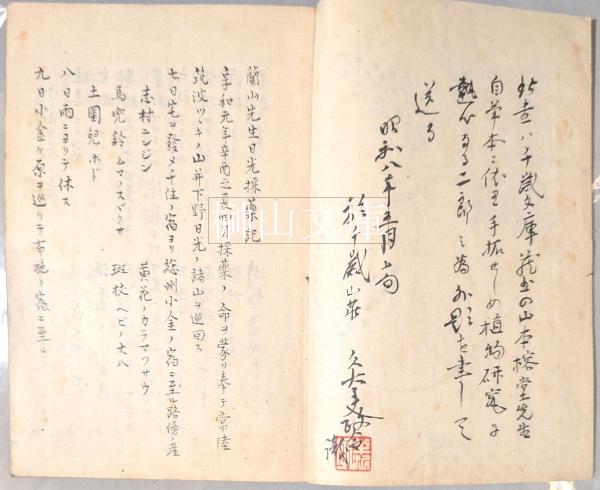 此書ハ千歳文庫蔵書の山本榕室先生
自筆本に依里手拓せしめ植物研究に
熱心なる二郎之為外題を書して
送る
昭和八年五月上旬
於千歳山荘
識
蘭山先生日光採薬記
享和元年辛酉之夏四月採薬ノ命ヲ蒙リ奉テ常陸
筑波ツヾキノ山并下野日光ノ諸山ヲ巡回ス
七日宅ヲ發メ千住ノ宿ヨリ総州小金ノ宿ニ至ル路傍ノ産
志村ニンジン 黄花ノカラマツサウ
馬兜鈴 ムマノスヾクサ 斑杖 ヘビノ大八
土圞兒 ホド
八日雨ニヨリテ休ス
九日小金ケ原ヲ巡リテ布施ノ宿ニ至ル
桐山文庫